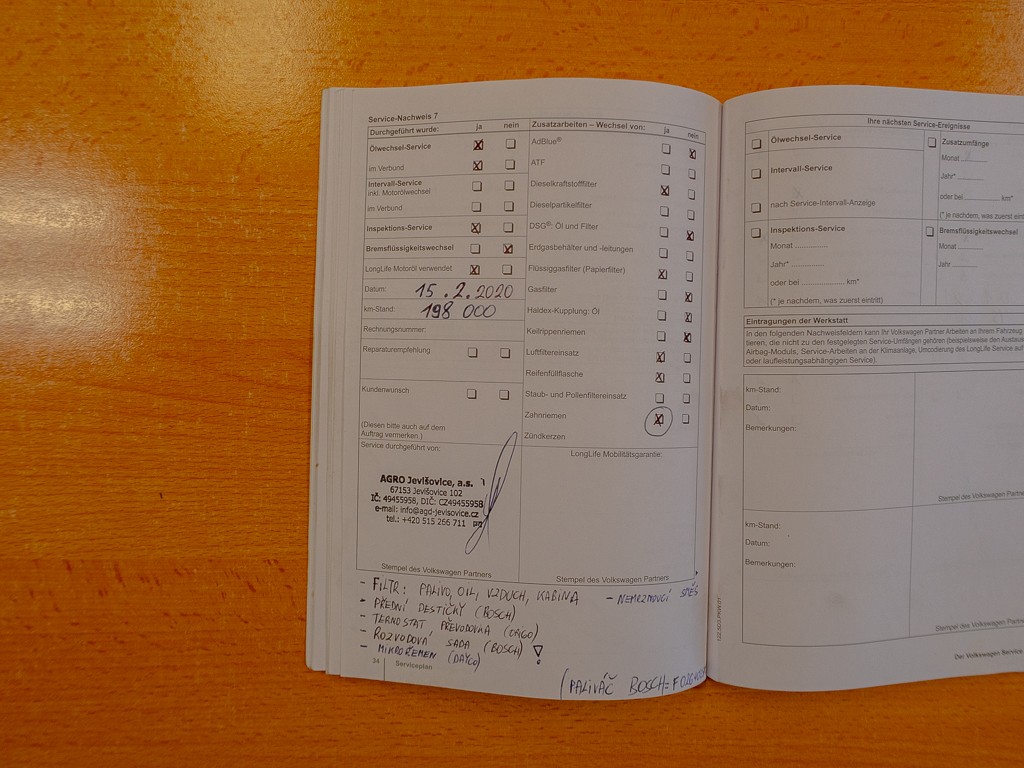 Service-Nachweis 7
Durchgeführt wurde: ja nein
Ölwechsel-Service
im Verbund
Intervall-Service
inkl. Motorölwechsel
im Verbund
Inspektions-Service
Bremsflüssigkeitswechsel
LongLife Motoröl verwendet
Datum: 15.2.2020
km-Stand: 198 000
Rechnungsnummer:
Reparaturempfehlung
Kundenwunsch
(Diesen bitte auch auf dem
Auftrag vermerken.)
Service durchgeführt von:
AGRO Jevišovice, a.s.
67153 Jevišovice 102
IČ: 49455958, DIČ: CZ49455958
e-mail: info@agd-jevisovice.cz
tel.: +420 515 266 711
Stempel des Volkswagen Partners
Zusatzarbeiten – Wechsel von: ja nein
AdBlue®
ATF
Dieselkraftstofffilter
Dieselpartikelfilter
DSG®: Öl und Filter
Erdgasbehälter und -leitungen
Flüssiggasfilter (Papierfilter)
Gasfilter
Haldex-Kupplung: Öl
Keilrippenriemen
Luftfiltereinsatz
Reifenfüllflasche
Staub- und Pollenfiltereinsatz
Zahnriemen
Zündkerzen
LongLife Mobilitätsgarantie:
Stempel des Volkswagen Partners
- FILTR: PALIVO, OIL, VZDUCH, KABINA
- NEMRZNOUCÍ SMĚS
- PŘEDNÍ DESTIČKY (BOSCH)
- TERMOSTAT PŘEVODOVKA (ORGO)
- ROZVODOVÁ SADA (BOSCH)
- MIKROŘEMEN (DAYCO)
(PALIVÁČ BOSCH=F026
34 Serviceplan
Ihre nächsten Service-Ereignisse
Ölwechsel-Service
Intervall-Service
nach Service-Intervall-Anzeige
Inspektions-Service
Monat
Jahr*
oder bei km*
(* je nachdem, was zuerst eintritt)
Zusatzumfänge
Monat
Jahr*
oder bei km*
(* je nachdem, was zuerst eintritt)
Bremsflüssigkeitswechsel
Monat
Jahr
Eintragungen der Werkstatt
In den folgenden Nachweisfeldern kann Ihr Volkswagen Partner Arbeiten an Ihrem Fahrzeug
tieren, die nicht zu den festgelegten Service-Umfängen gehören (beispielsweise den Austau
Airbag-Moduls, Service-Arbeiten an der Klimaanlage, Umcodierung des LongLife Service auf
oder laufleistungsabhängigen Service).
km-Stand:
Datum:
Bemerkungen:
Stempel des Volkswagen Partners
km-Stand:
Datum:
Bemerkungen:
Stempel des Volkswagen Partne
Der Volkswagen Service